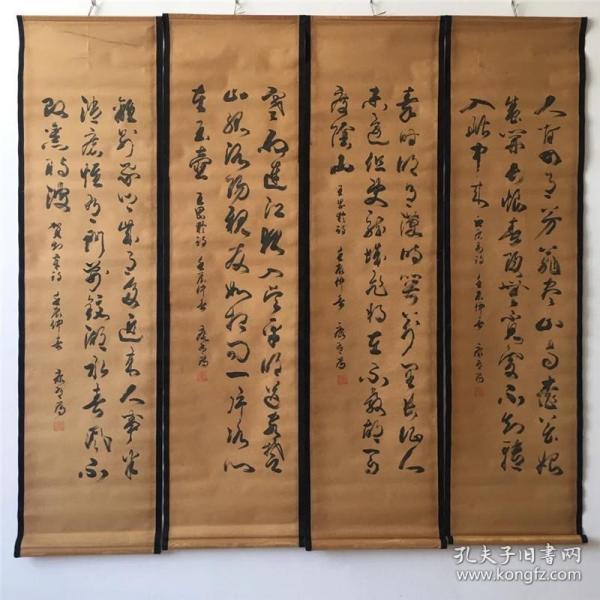 人間四月芳菲盡山寺桃花始
盛開長恨春歸無覓處不知轉
入此中來 白居易詩 壬辰仲春 康有為
秦時明月漢時關萬里長征人
未還但使龍城飛將在不教胡馬
度陰山 王昌齡詩 壬辰仲春 康有為
寒雨連江夜入吳平明送客楚
山孤洛陽親友如相問一片冰心
在玉壺 王昌齡詩 壬辰仲春 康有為
離別家鄉歲月多近來人事半
消磨惟有門前鏡湖水春風不
改舊時波 賀知章詩 壬辰仲春 康有為
孔夫子旧书网
www.kongfz.com